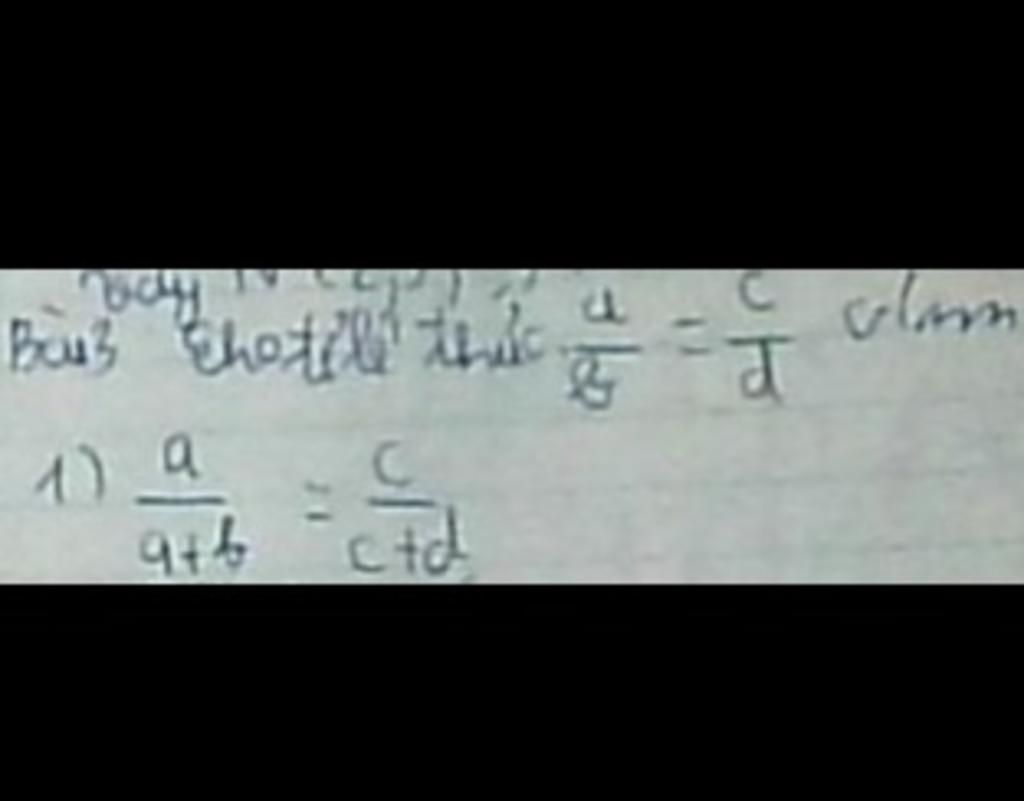 Bài 3 Cho tỉ lệ thức a/b = c/d
1) a/a+b = c/c+d